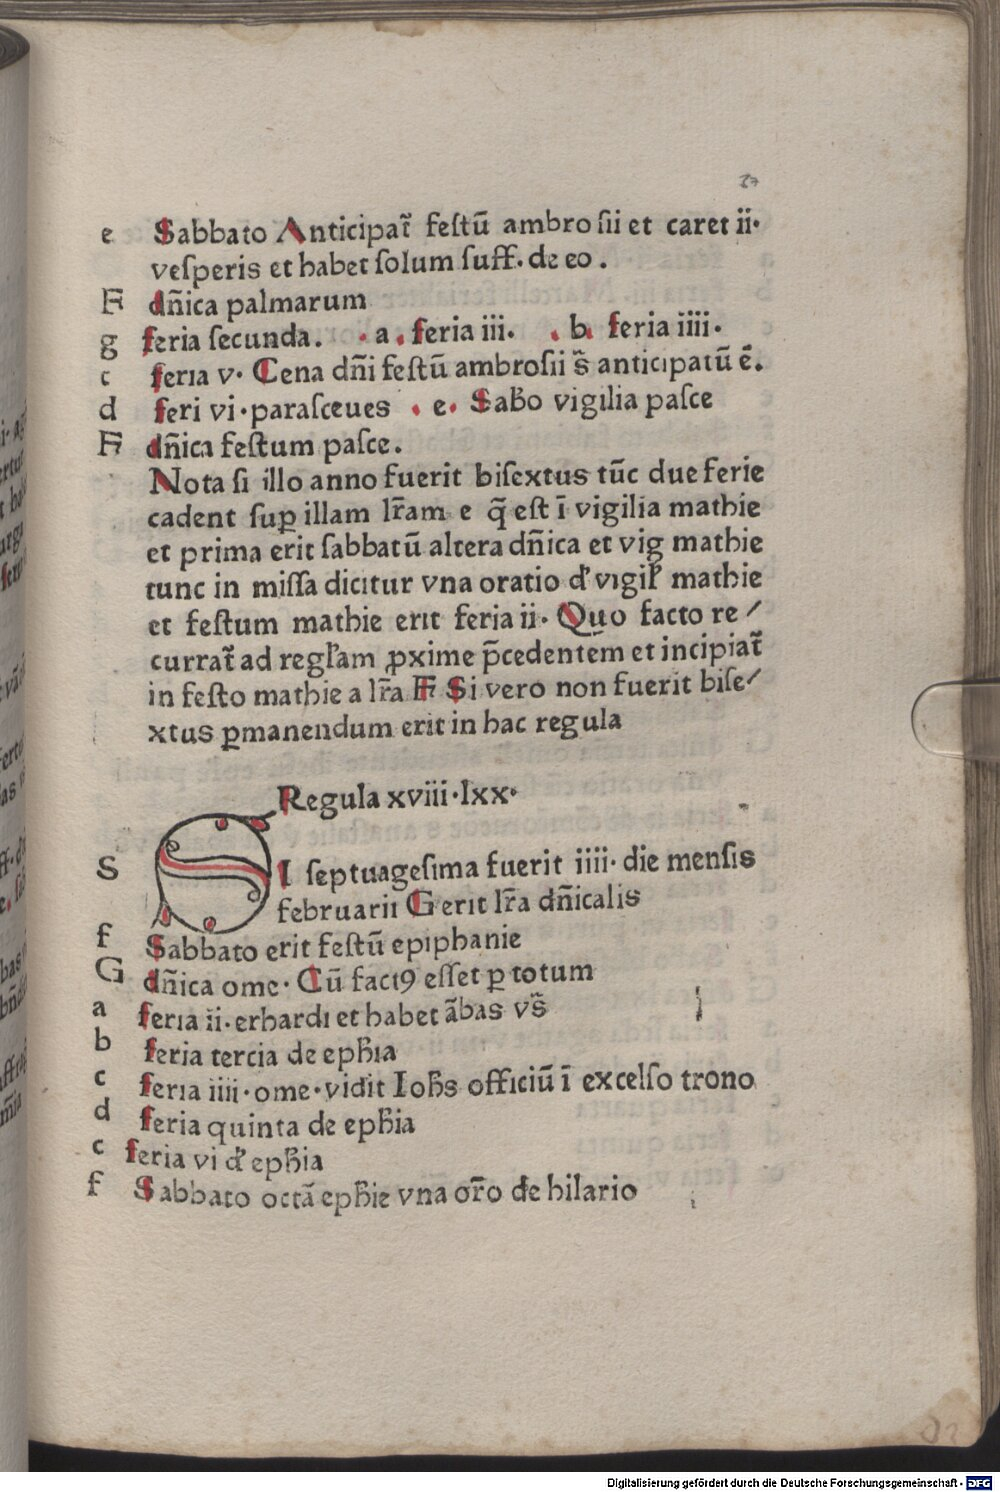 27
e Sabbato Anticipat̃ feſtū ambroſii et caret ii·
veſperis et habet ſolum ſuff· de eo .
F dñica palmarum
g feria ſecunda . · a . feria iii· . b . feria iiii·
c feria v· Cena dñi feſtū ambroſii s̃ anticipatū ē .
d feri vi · paraſceues . e . Sabƀo vigilia paſce
F dñica feſtum paſce .
Nota ſi illo anno fuerit biſextus tūc due ferie
cadent ſuꝑ illam lr̃am e q̃ eſt ī vigilia mathie
et prima erit ſabbatū altera dñica et vig mathie
tunc in miſſa dicitur vna oratio d' vigil' mathie
et feſtum mathie erit feria ii· Quo facto re⸗
currat̃ ad regl'am ꝓxime p̄cedentem et incipiat̃
in feſto mathie a lr̃a F Si vero non fuerit biſe⸗
xtus ꝑmanendum erit in hac regula
Regula xviii·lxx·
S SI ſeptuagesima fuerit iiii· die menſis
februarii G erit lr̃a dñicalis
f Sabbato erit feſtū epiphanie
G dñica ome· Cū factꝰ eſſet ꝑ totum
a feria ii· erhardi et habet ābas vs̃
b feria tercia de epħia
c feria iiii · ome · vidit Ioħs officiū ī excelſo trono
d feria quinta de epħia
c feria vi d' epħia
f Sabbato octā epħie vna or̃o de hilario
Digitalisierung gefördert durch die Deutsche Forschungsgemeinschaft - DFG